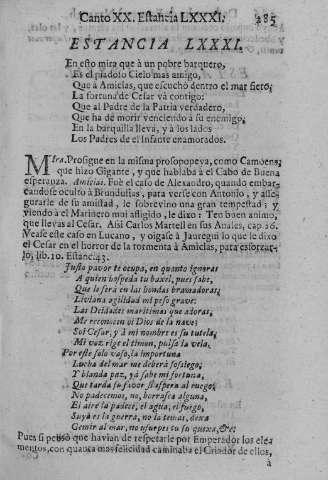 Canto XX. Estancia LXXXI. 285
ESTANCIA LXXXI.
En esto mira que à un pobre barquero,
Es el piadoso Cielo mas amigo,
Que à Amiclas, que escuchò dentro el mar fiero,
La fortuna de Cesar và contigo:
Que al Padre de la Patria verdadero,
Que ha de morir venciendo à su enemigo,
En la barquilla lleva, y à los lados
Los Padres de el Infante enamorados.
Mira. Prosigue en la misma prosopopeya, como Camoens,
que hizo Gigante, y que hablaba à el Cabo de Buena
esperanza. Amiclas. Fuè el caso de Alexandro, quando embar-
candose oculto à Brundusias, para verse con Antonio, y asse-
gurarle de su amistad, le sobrevino una gran tempestad; y
viendo à el Marinero mui afligido, le dixo: Ten buen animo,
que llevas al Cesar. Asi Carlos Martell en sus Anales, cap. 26.
Vease este caso en Lucano, y oigase à Jauregui lo que le dixo
el Cesar en el horror de la tormenta à Amiclas, para esforzar-
lo, lib. 10. Estanc. 43.
Justa pavor te ocupa, en quanto ignoras
A quien hospeda tu baxel, pues sabe,
Que le serà en las hondas bramadoras,
Liviana agilidad mi peso grave:
Las Deidades maritimas que adoras,
Me reconocen oi Dios de la nave:
Soi Cesar, y à mi nombre es su tutela,
Mi voz rige el timon, pulsa la vela.
Por este solo vaso, la importuna
Lucha del mar me deberà sosiego;
Y blanda paz, yà sabe mi fortuna,
Que tarda su favor si espera al ruego;
No padecemos, no, borrasca alguna,
El aire la padece, el agua, el fuego,
Suya es la guerra, no la temas, dexa
Gemir al mar, no usurpes tu su quexa, &c.
Pues si pensò que havian de respetarle por Emperador los ele-
mentos, con quanta mas felicidad caminaba el Criador de ellos,
à